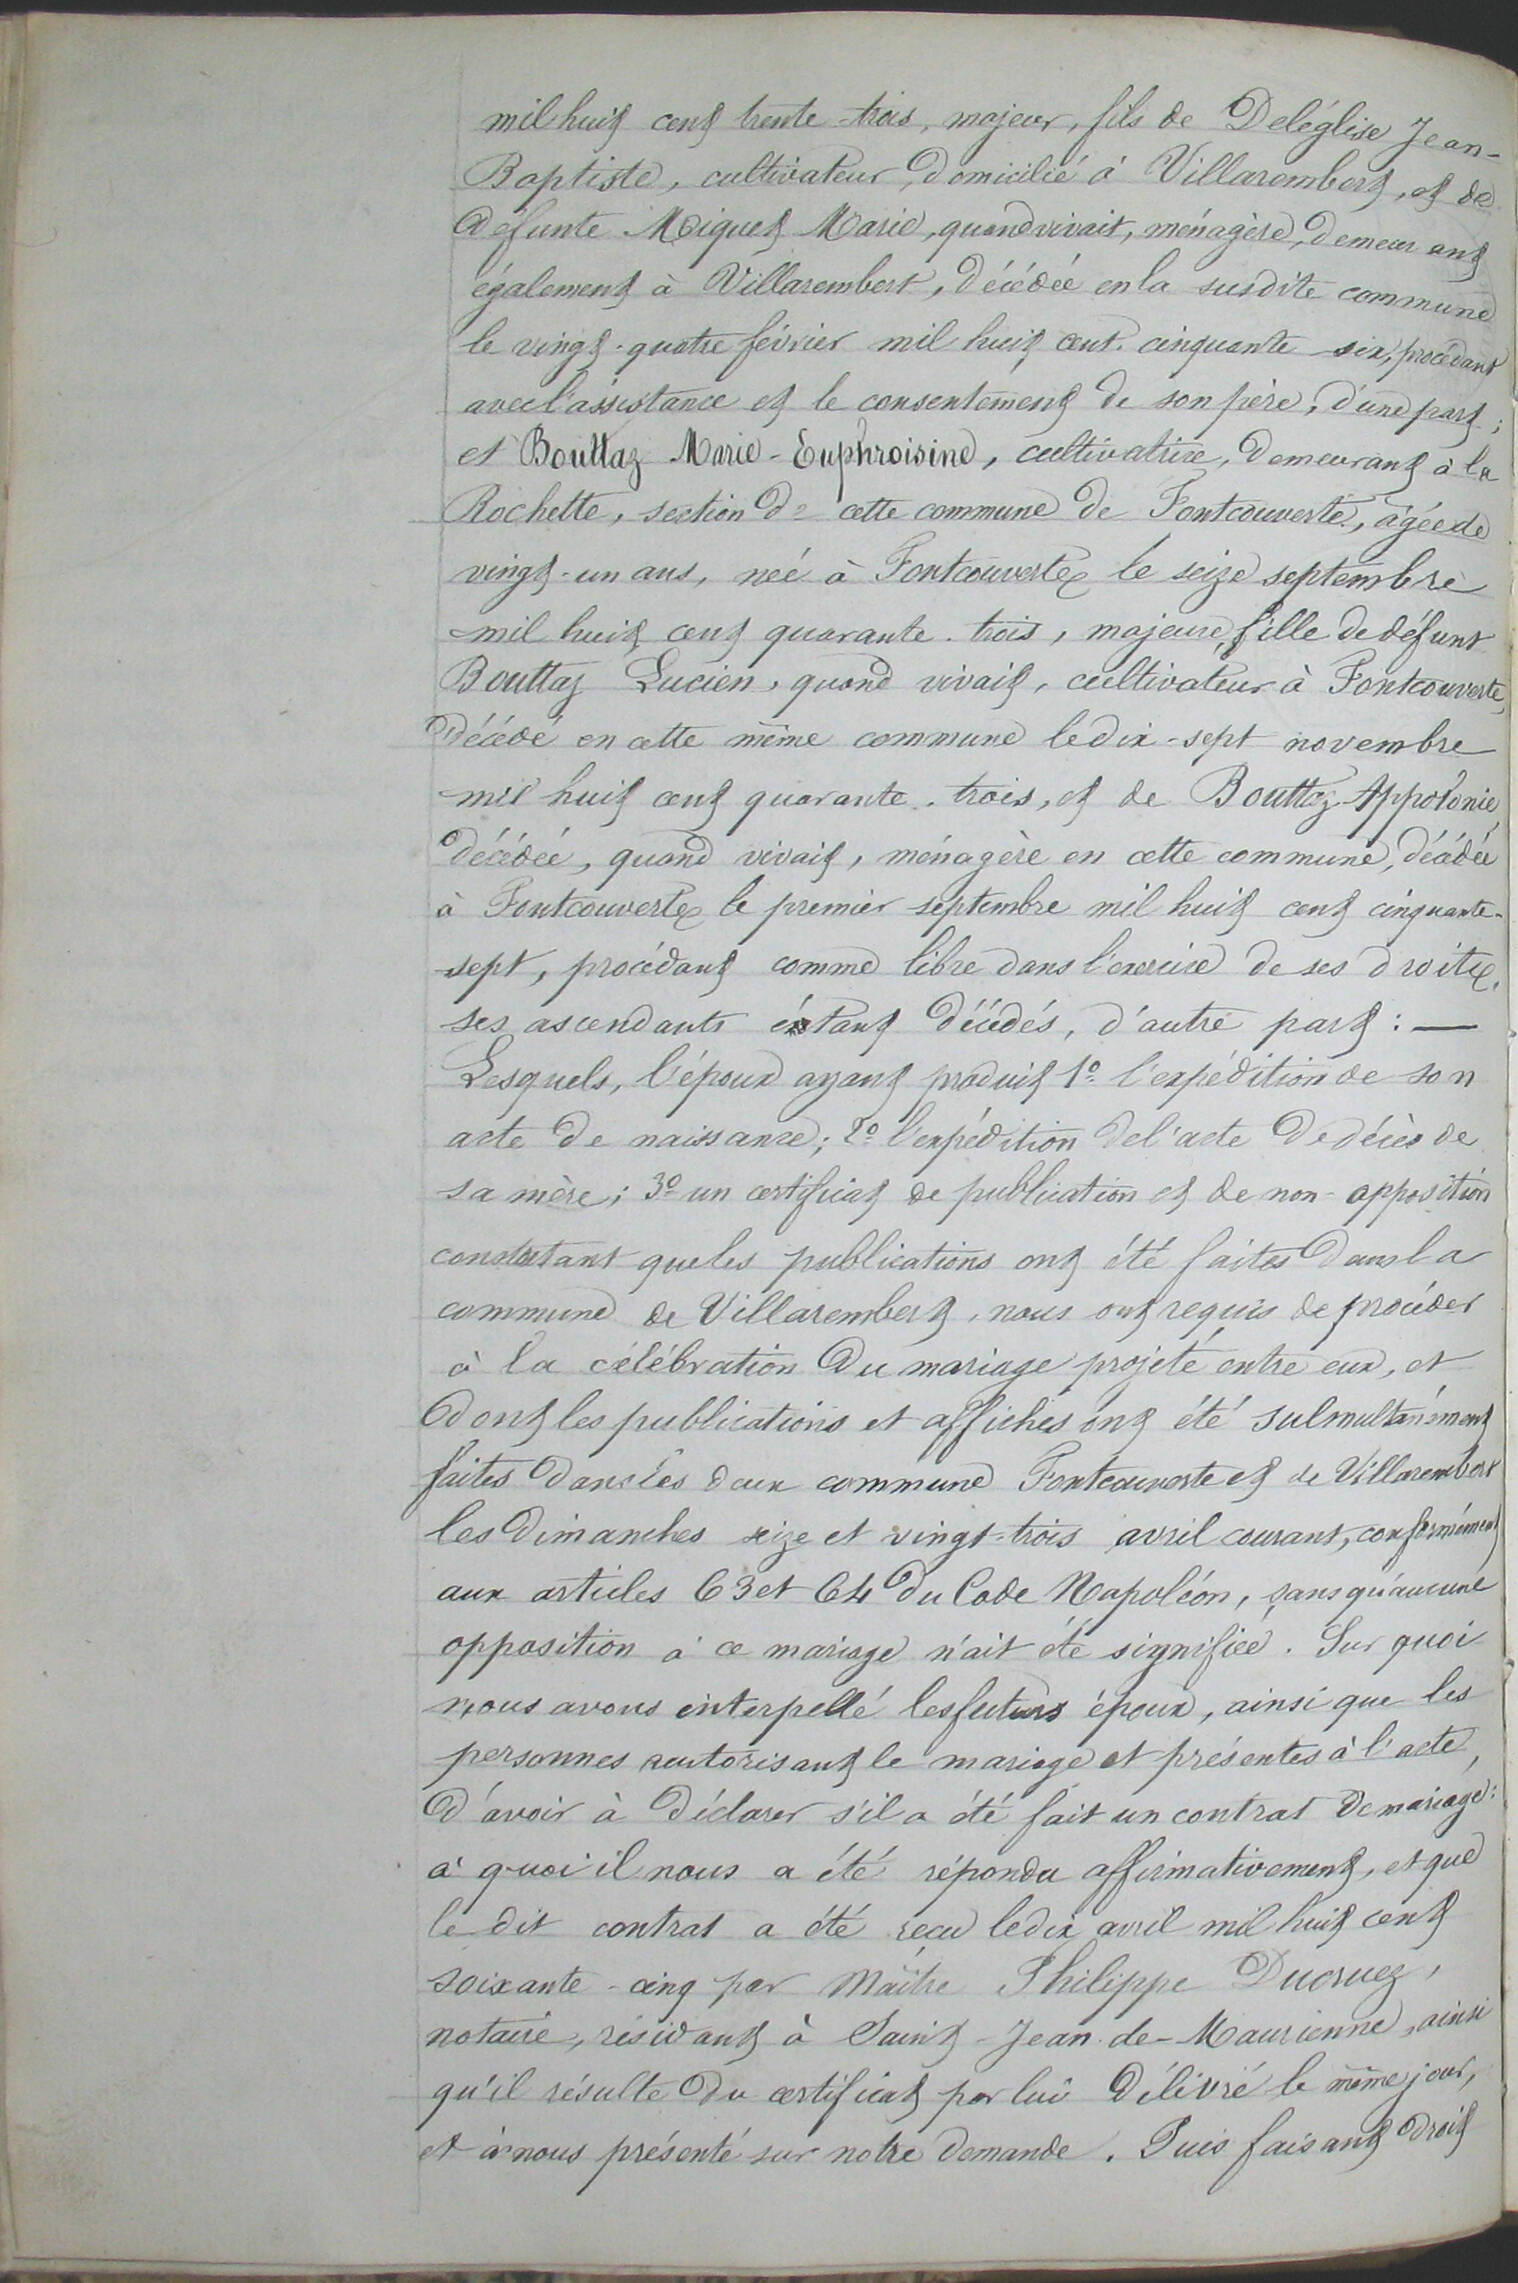 mil huit cent trente-trois, majeur, fils de Deléglise Jean-
Baptiste, cultivateur, domicilié à Villarembert, et de
défunte Miquet Marie, quand vivait, ménagère, demeurant
également à Villarembert, décédée en la susdite commune
le vingt-quatre février mil huit cent cinquante-six, procédant
avec l'assistance et le consentement de son père, d'une part;
et Bouttaz Marie-Euphroisine, cultivatrice, demeurant à la
Rochette, section de cette commune de Fontcouverte, âgée de
vingt-un ans, née à Fontcouverte le seize septembre
mil huit cent quarante-trois, majeure, fille de défunt
Bouttaz Lucien, quand vivait, cultivateur à Fontcouverte,
décédé en cette même commune le dix-sept novembre
mil huit cent quarante-trois, et de Bouttaz Appolonie,
décédée, quand vivait, ménagère en cette commune, décédée
à Fontcouverte le premier septembre mil huit cent cinquante-
sept, procédant comme libre dans l'exercice de ses droits,
ses ascendants étant décédés, d'autre part: —
Lesquels, l'époux ayant produit 1º l'expédition de son
acte de naissance; 2º l'expédition de l'acte de décès de
sa mère; 3º un certificat de publication et de non-opposition
constatant que les publications ont été faites dans la
commune de Villarembert, nous ont requis de procéder
à la célébration du mariage projeté entre eux, et
dont les publications et affiches ont été sulmultanément
faites dans les deux commune Fontcouverte et de Villarembert
les dimanches seize et vingt-trois avril courant, conformément
aux articles 63 et 64 du Code Napoléon, sans qu'aucune
opposition à ce mariage n'ait été signifiée. Sur quoi
nous avons interpellé les futurs époux, ainsi que les
personnes autorisant le mariage et présentes à l'acte,
d'avoir à déclarer s'il a été fait un contrat de mariage:
à quoi il nous a été répondu affirmativement, et que
le dit contrat a été reçu le dix avril mil huit cent
soixante-cinq par Maître Philippe Ducruez,
notaire, résidant à Saint-Jean-de-Maurienne, ainsi
qu'il résulte du certificat par lui délivré le même jour,
et à nous présenté sur notre demande. Puis faisant droit